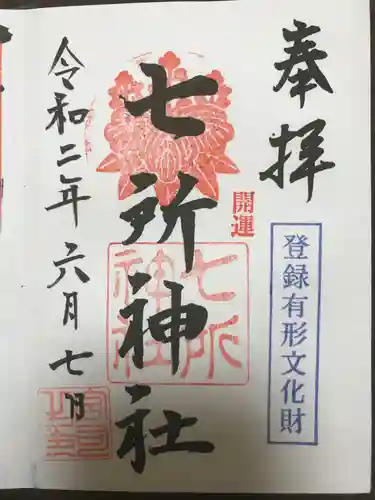 奉拝
登録有形文化財
開運
七所神社
七所神社
令和二年六月七日
宮司之印